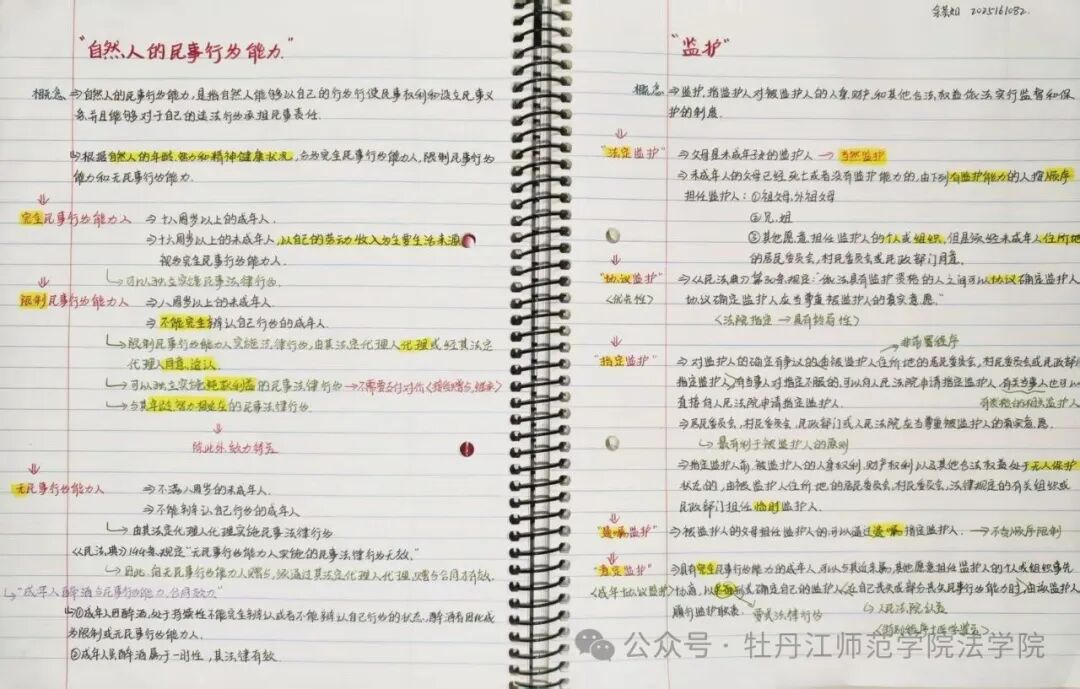 2025161082
"自然人的民事行为能力"
概念 ⇒自然人的民事行为能力,是指自然人能够以自己的行为行使民事权利和设立民事义
务,并且能够对于自己的违法行为承担民事责任.
↳根据自然人的年龄、智力和精神健康状况,分为完全民事行为能力人,限制民事行为
能力和无民事行为能力.
完全民事行为能力人 ⇒十八周岁以上的成年人.
⇒十六周岁以上的未成年人,以自己的劳动收入为主要生活来源
视为完全民事行为能力人.
↳可以独立实施民事法律行为
限制民事行为能力人 ⇒八周岁以上的未成年人.
⇒不能完全辨认自己行为的成年人.
↳限制民事行为能力人实施法律行为,由其法定代理人代理或经其法定
代理人同意、追认.
↳可以独立实施纯获利益的民事法律行为→不需要支付对价
↳与其年龄、智力相适应的民事法律行为.
除此外效力待定
无民事行为能力人 ⇒不满八周岁的未成年人.
⇒不能辨认自己行为的成年人
↳由其法定代理人代理实施民事法律行为
《民法典》144条规定"无民事行为能力人实施的民事法律行为无效."
↳因此,向无民事行为能力人赠与,须通过其法定代理人代理,赠与合同才有效.
↳"成年人醉酒与民事行为能力、合同效力"
↳①成年人因醉酒,处于持续性不能完全辨认或者不能辨认自己行为的状态,醉酒者因此成
为限制或无民事行为能力人.
②成年人醉酒属于一时性,其法律有效.
"监护"
概念 ⇒监护,指监护人对被监护人的人身、财产和其他合法权益依法实行监督和保
护的制度.
"法定监护" ⇒父母是未成年子女的监护人 → 当然监护
⇒未成年人的父母已经死亡或者没有监护能力的,由下列有监护能力的人按顺序
担任监护人:①祖父母,外祖父母
②兄,姐
③其他愿意担任监护人的个人或组织,但是须经未成年人住所地
的居民委员会,村民委员会或民政部门同意.
"协议监护" ⇒《民法典》第30条规定:"依法具有监护资格的人之间可以协议确定监护人
<优先性> 协议确定监护人应当尊重被监护人的真实意愿."
<法院指定→具有终局性>
非前置程序
"指定监护" ⇒对监护人的确定有争议的,由被监护人住所地的居民委员会,村民委员会或民政部门
指定监护人,有当事人对指定不服的,可以向人民法院申请指定监护人,有关当事人也可以
直接向人民法院申请指定监护人.
⇒居民委员会,村民委员会,民政部门或人民法院应当尊重被监护人的真实意愿.
↳最有利于被监护人的原则
⇒指定监护人前,被监护人的人身权利、财产权利以及其他合法权益处于无人保护
状态的,由被监护人住所地的居民委员会,村民委员会,法律规定的有关组织或
民政部门担任临时监护人.
"遗嘱监护" ⇒被监护人的父母担任监护人的可以通过遗嘱指定监护人. →不含顺序限制
"意定监护" ⇒具有完全民事行为能力的成年人,可以与其近亲属,其他愿意担任监护人的个人或组织事先
<成年协议监护> 协商,以书面形式确定自己的监护人,在自己丧失或部分丧失民事行为能力时,由该监护人
履行监护职责. 要式法律行为 ↳人民法院认定
公众号 · 牡丹江师范学院法学院